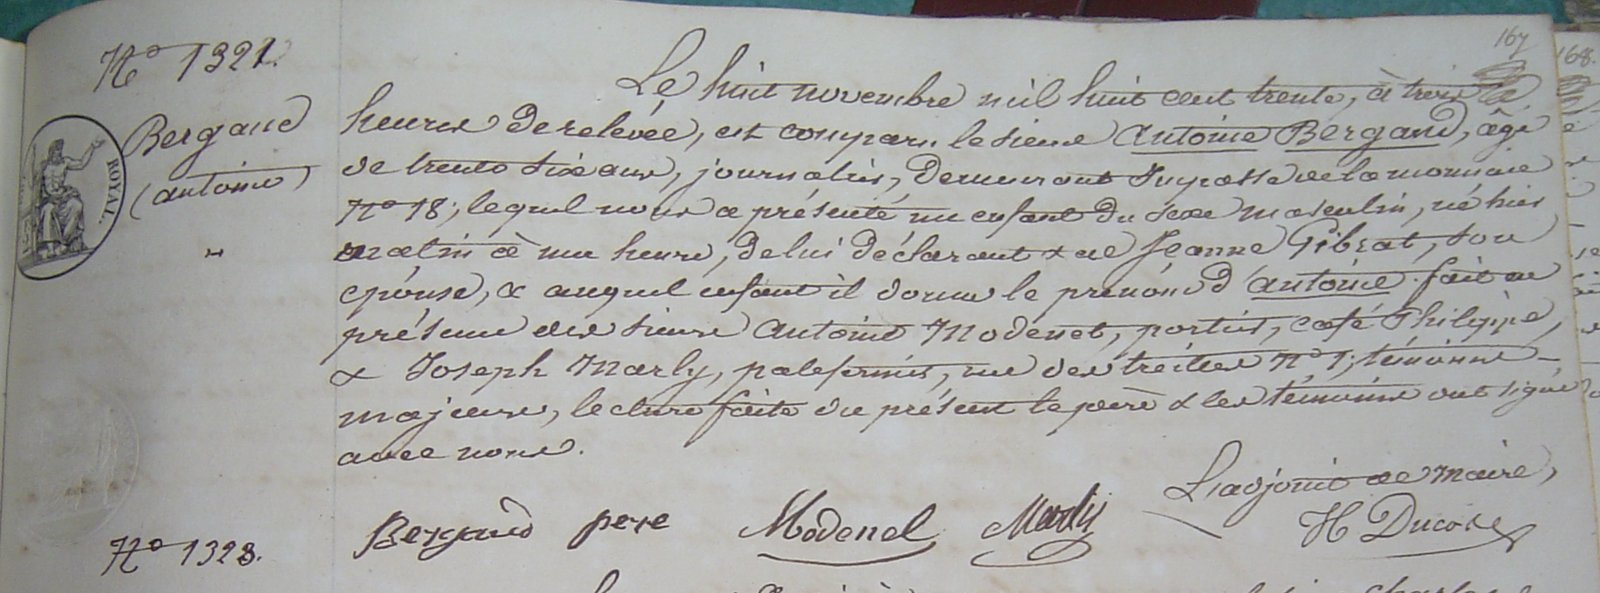 167
168.
Nº 1321.
Bergaud
(antoine)
ROYAL.
Le huit novembre mil huit cent trente, à trois
heures de relevée, est comparu le sieur Antoine Bergaud, âgé
de trente six ans, journalier, demeurant Impasse de la monnaie
Nº 18; lequel nous a présenté un enfant du sexe masculin, né hier
matin à une heure, de lui déclarant & de Jeanne Gibrat, son
épouse, & auquel enfant il donne le prénom d'antoine. fait en
présence des sieurs Antoine Modenel, portier, café Philippe,
& Joseph Marly, palefrenier, rue des treilles Nº 7; témoins
majeurs, lecture faite du présent le père & les témoins ont signé
avec nous.
L'adjoint de Maire,
Bergaud pere Modenel Marly H Ducos
Nº 1328.